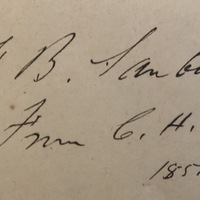 B. Sanb
From C. H.
185